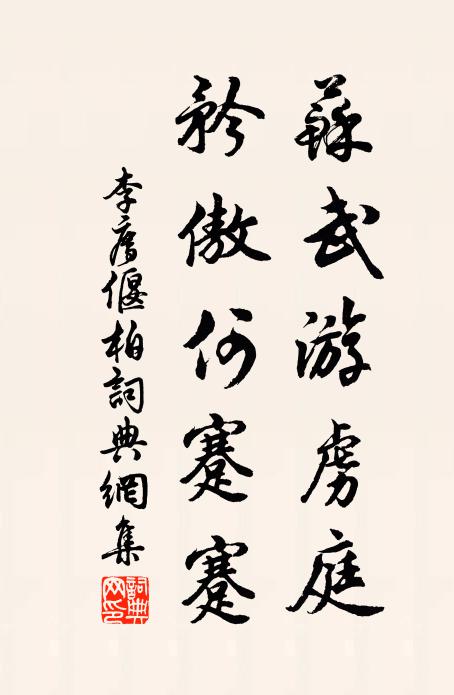 蘇武游虜庭
矜傲何蹇蹇
李廌偃柏詞典網集
詞典
网印